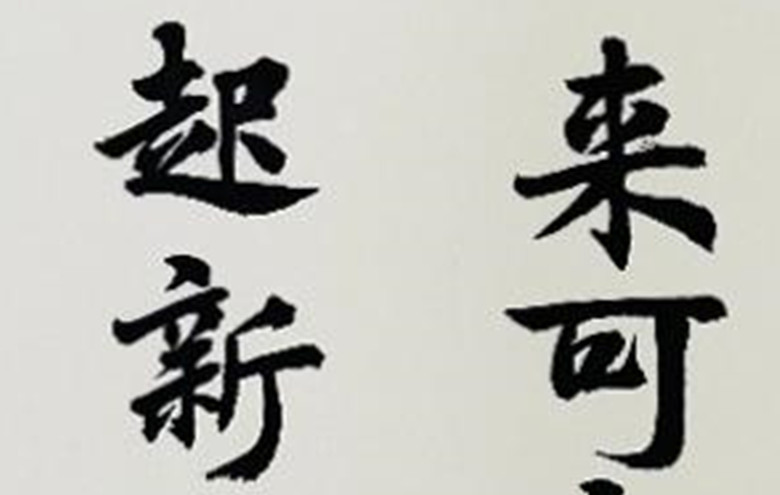 来可
起新